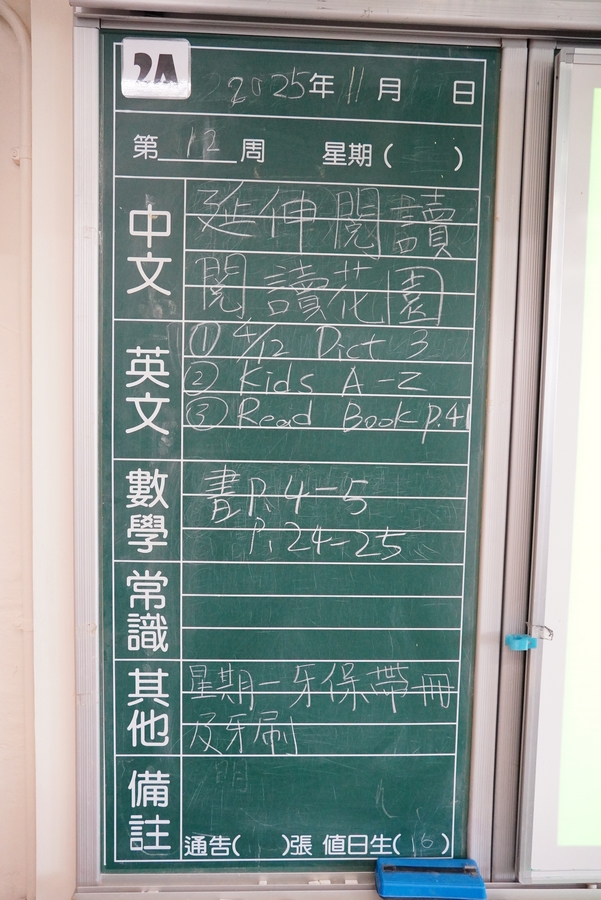 2A
2025年11月 日
第12周 星期( )
中文
延伸閱讀
閱讀花園
英文
① 4/12 Dict 3
② Kids A-Z
③ Read Book p.41
數學
書P.4-5
P.24-25
常識
其他
星期一牙保帶冊
及牙刷
備註
通告( )張 值日生(16)